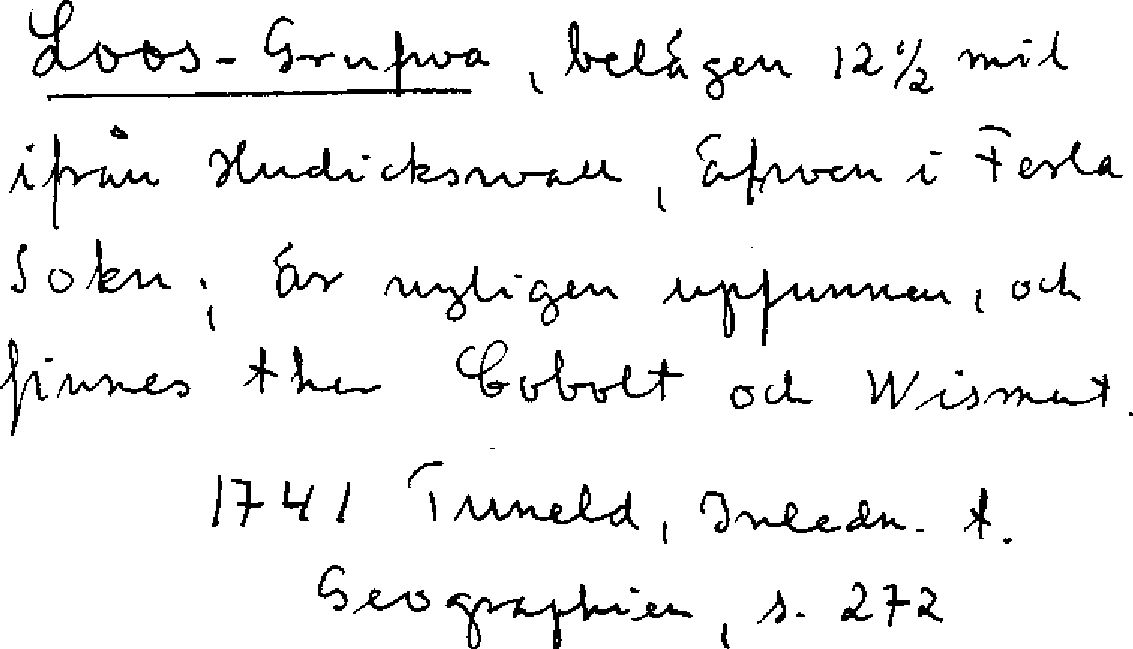 Loos-Grufwa, belägen 12 1/2 mil
ifrån Hudickswall, Äfwen i Ferla
Sokn; Är nyligen upfunnen, och
finnes ther Cobolt och Wismut.
1741 Tuneld, Inledn. t.
Geographien, s. 272